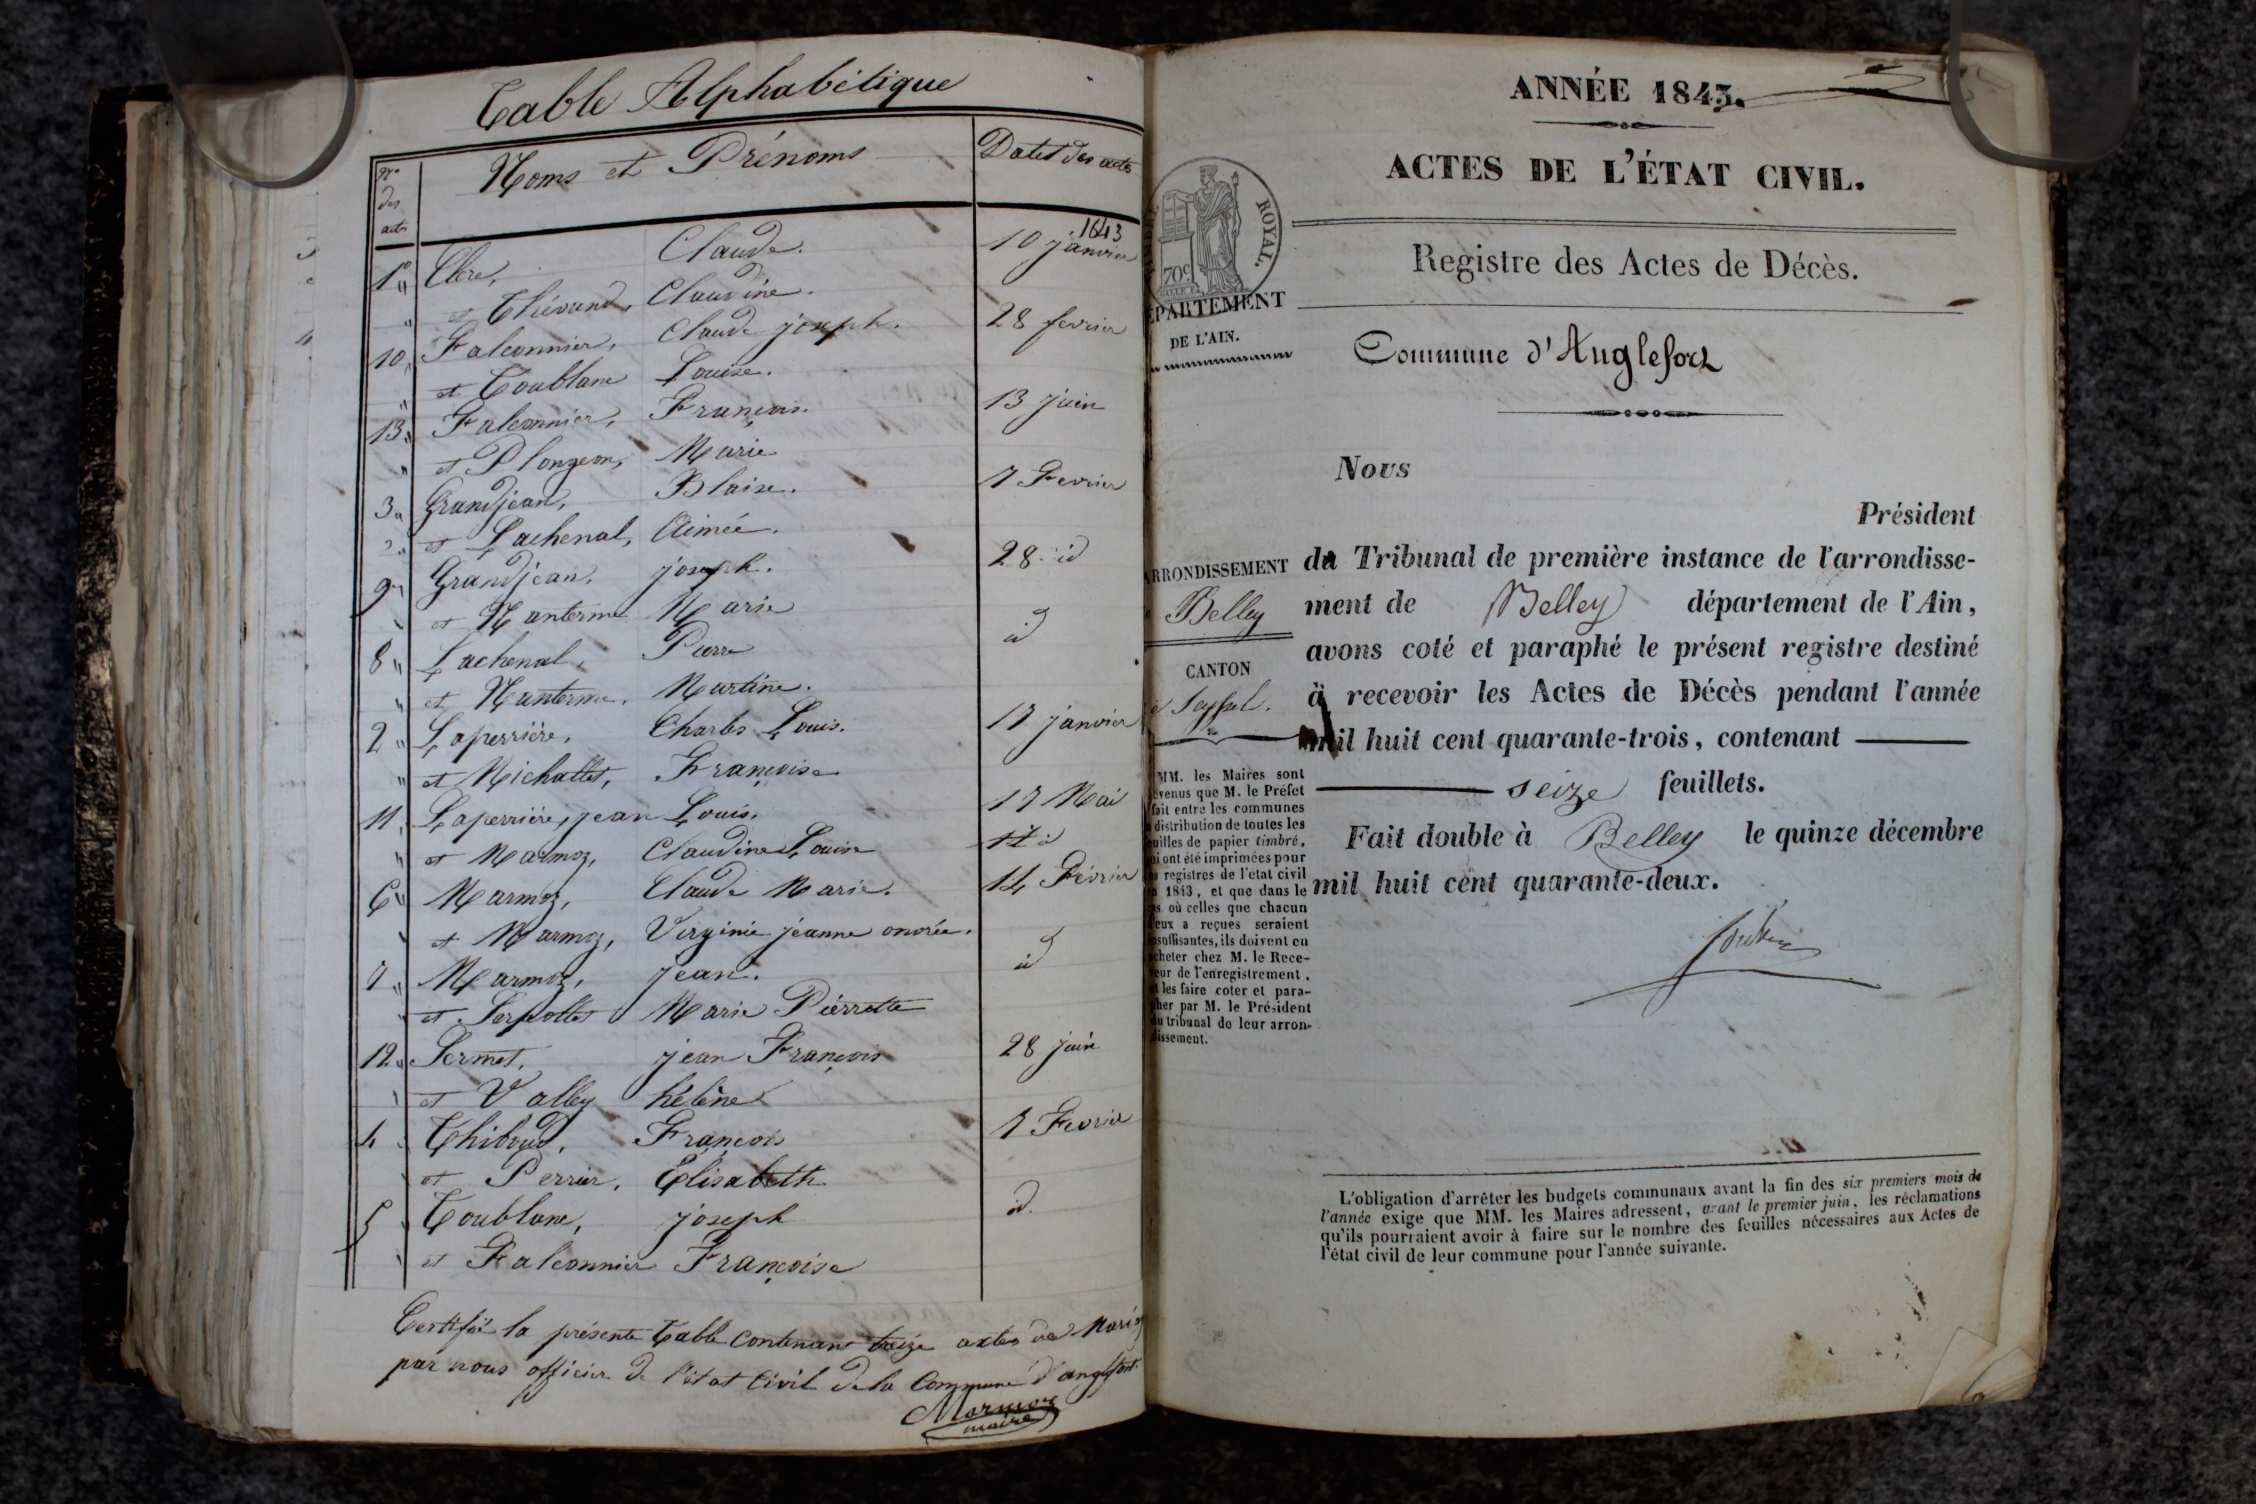 Table Alphabétique
Nos des actes
Noms et Prénoms
Dates des actes
1843
1 " Clerc, Claude. 10 janvier
" et Thévand, Claudine.
10 " Falconnier, Claude joseph. 28 fevrier
" et Toublanc Louise.
13 " Falconnier, François. 13 juin
" et Plongeon, Marie
3 " Grandjean, Blaise. 7 Fevrier
" et Lachenal, Aimée.
9 " Grandjean, joseph. 28 id
" et Nanterme Marie
8 " Lachenal, Pierre id
" et Nanterme, Martine.
2 " Laperrière, Charles Louis. 17 janvier
" et Michallet, Françoise
11 " Laperrière, jean Louis. 17 Mai
" et Marmoz, Claudine Louise
6 " Marmoz, Claude Marie. 14 Fevrier
" et Marmoz, Virginie jeanne onorée.
7 " Marmoz, jean. id
" et Serpollet Marie Pierrette
12 " Sermet, jean François 28 juin
" et Valley hélène
4 " Thiboud, François 7 Fevrier
" et Perrier, Elisabeth
5 " Toublanc, joseph id.
" et Falconnier Françoise
Certifié la présente Table contenant treize actes de Mariag
par nous officier de l'état Civil de la Commune d'anglefort.
Marmoz
maire
ANNÉE 1843.
ACTES DE L'ÉTAT CIVIL.
Registre des Actes de Décès.
ROYAL.
70c
ÉPARTEMENT
DE L'AIN.
Commune d'Anglefort
Nous
Président
du Tribunal de première instance de l'arrondisse-
ment de Belley département de l'Ain,
avons coté et paraphé le présent registre destiné
à recevoir les Actes de Décès pendant l'année
mil huit cent quarante-trois, contenant
seize feuillets.
Fait double à Belley le quinze décembre
mil huit cent quarante-deux.
RRONDISSEMENT
Belley
CANTON
Seyssel.
MM. les Maires sont
evenus que M. le Préfet
fait entre les communes
distribution de toutes les
uilles de papier timbré,
ui ont été imprimées pour
s registres de l'état civil
n 1843, et que dans le
as où celles que chacun
'eux a reçues seraient
nsuffisantes, ils doivent en
cheter chez M. le Rece-
veur de l'enregistrement,
t les faire coter et para-
pher par M. le Président
du tribunal de leur arron-
dissement.
L'obligation d'arrêter les budgets communaux avant la fin des six premiers mois de
l'année exige que MM. les Maires adressent, avant le premier juin, les réclamations
qu'ils pourraient avoir à faire sur le nombre des feuilles nécessaires aux Actes de
l'état civil de leur commune pour l'année suivante.